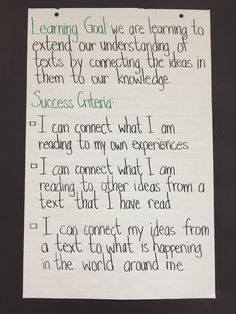 Learning Goal we are learning to
extend our understanding of
texts by connecting the ideas in
them to our knowledge.
Success Criteria:
I can connect what I am
reading to my own experiences
I can connect what I am
reading to other ideas from a
text that I have read
I can connect my ideas from
a text to what is happening
in the world around me